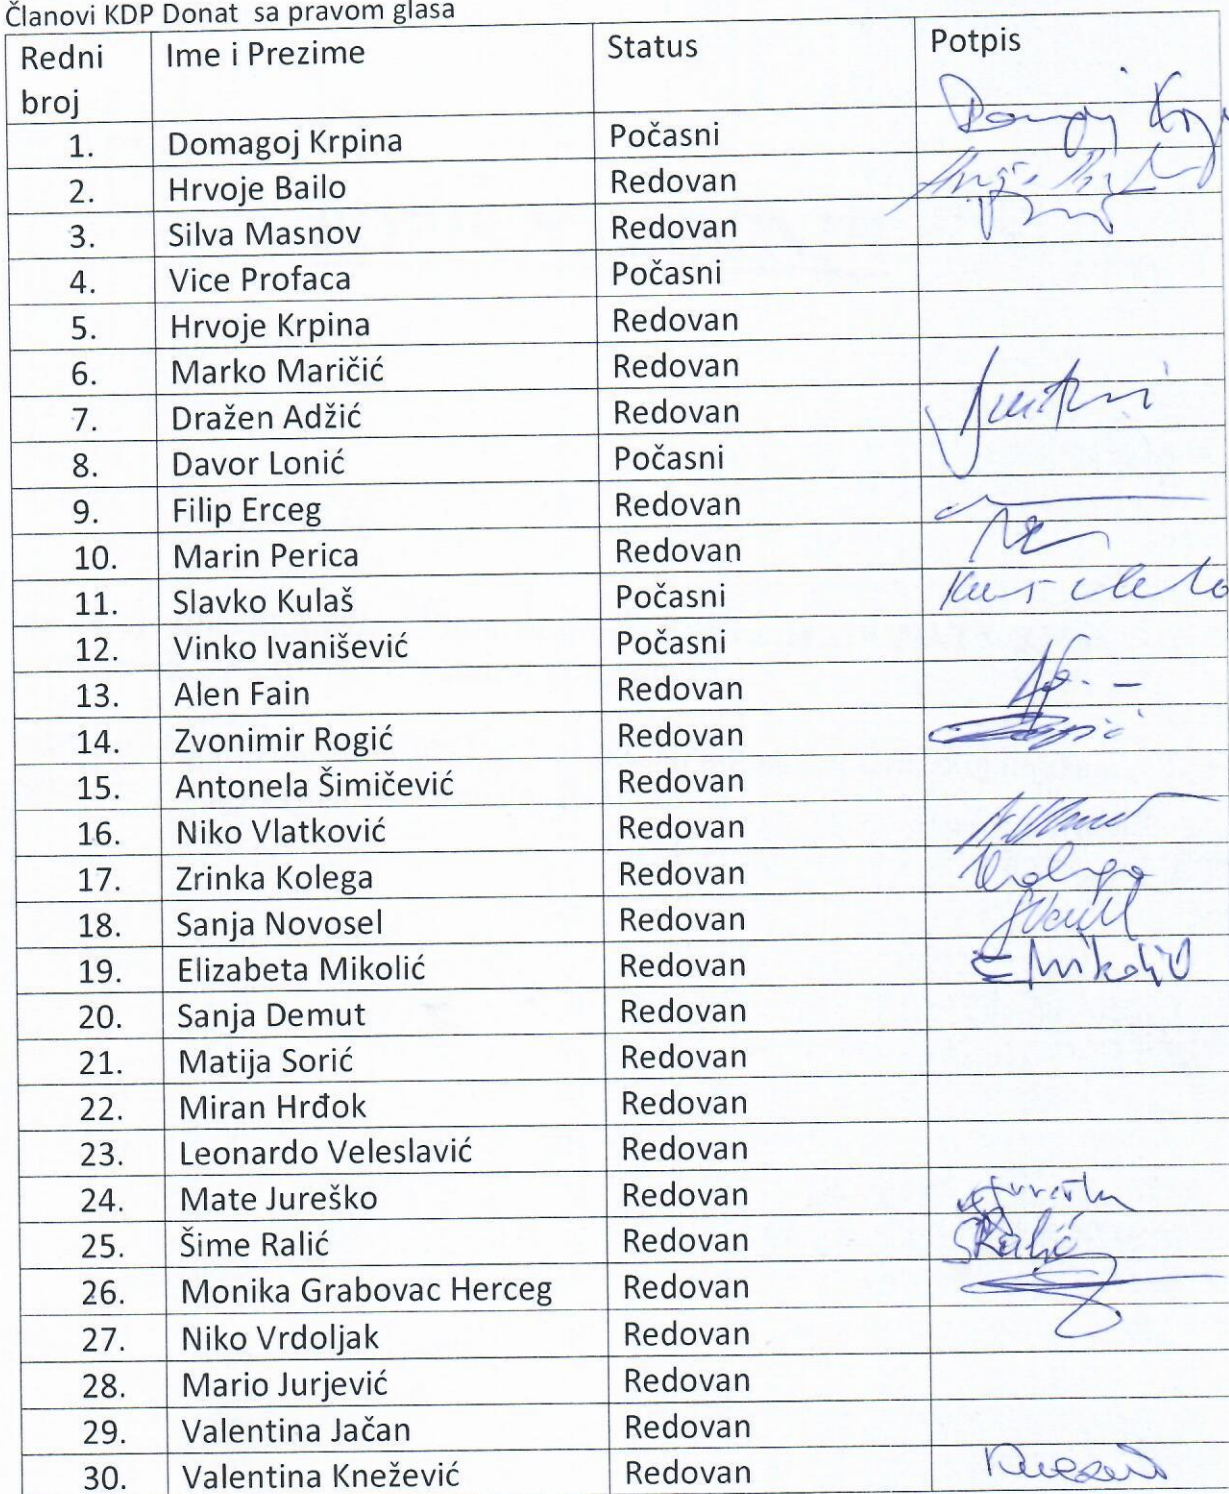 Članovi KDP Donat sa pravom glasa
Redni broj Ime i Prezime Status Potpis
1. Domagoj Krpina Počasni
2. Hrvoje Bailo Redovan
3. Silva Masnov Redovan
4. Vice Profaca Počasni
5. Hrvoje Krpina Redovan
6. Marko Maričić Redovan
7. Dražen Adžić Redovan
8. Davor Lonić Počasni
9. Filip Erceg Redovan
10. Marin Perica Redovan
11. Slavko Kulaš Počasni
12. Vinko Ivanišević Počasni
13. Alen Fain Redovan
14. Zvonimir Rogić Redovan
15. Antonela Šimičević Redovan
16. Niko Vlatković Redovan
17. Zrinka Kolega Redovan Kolega
18. Sanja Novosel Redovan
19. Elizabeta Mikolić Redovan E Mikolić
20. Sanja Demut Redovan
21. Matija Sorić Redovan
22. Miran Hrđok Redovan
23. Leonardo Veleslavić Redovan
24. Mate Jureško Redovan
25. Šime Ralić Redovan ŠRalić
26. Monika Grabovac Herceg Redovan
27. Niko Vrdoljak Redovan
28. Mario Jurjević Redovan
29. Valentina Jačan Redovan
30. Valentina Knežević Redovan